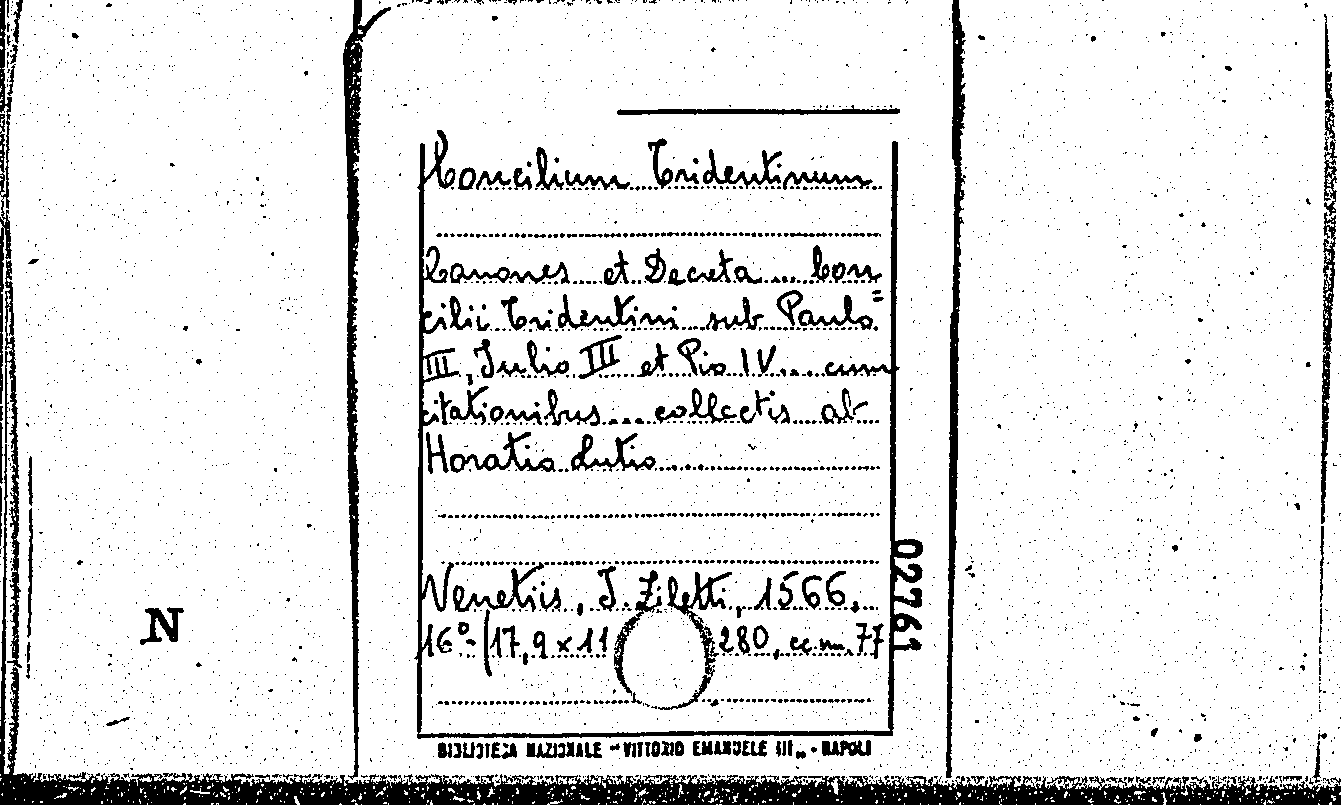 Concilium Tridentinum
Canones et Decreta ... Con=
cilii Tridentini sub Paulo
III, Julio III et Pio IV ... cum
citationibus ... collectis ab
Horatio Lutio ...
Venetiis, J. Ziletti, 1566.
16° (17,9 x 11 280, cc nn. 77
02761
N
BIBLIOTECA NAZIONALE "VITTORIO EMANUELE III" - NAPOLI